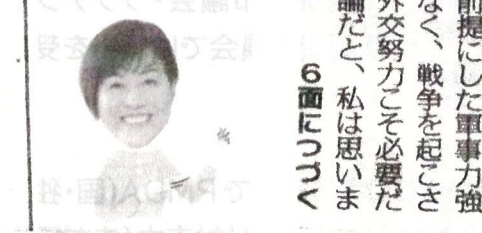 前提にした軍事力強
なく、戦争を起こさ
外交努力こそ必要だ
論だと、私は思いま
6面につづく